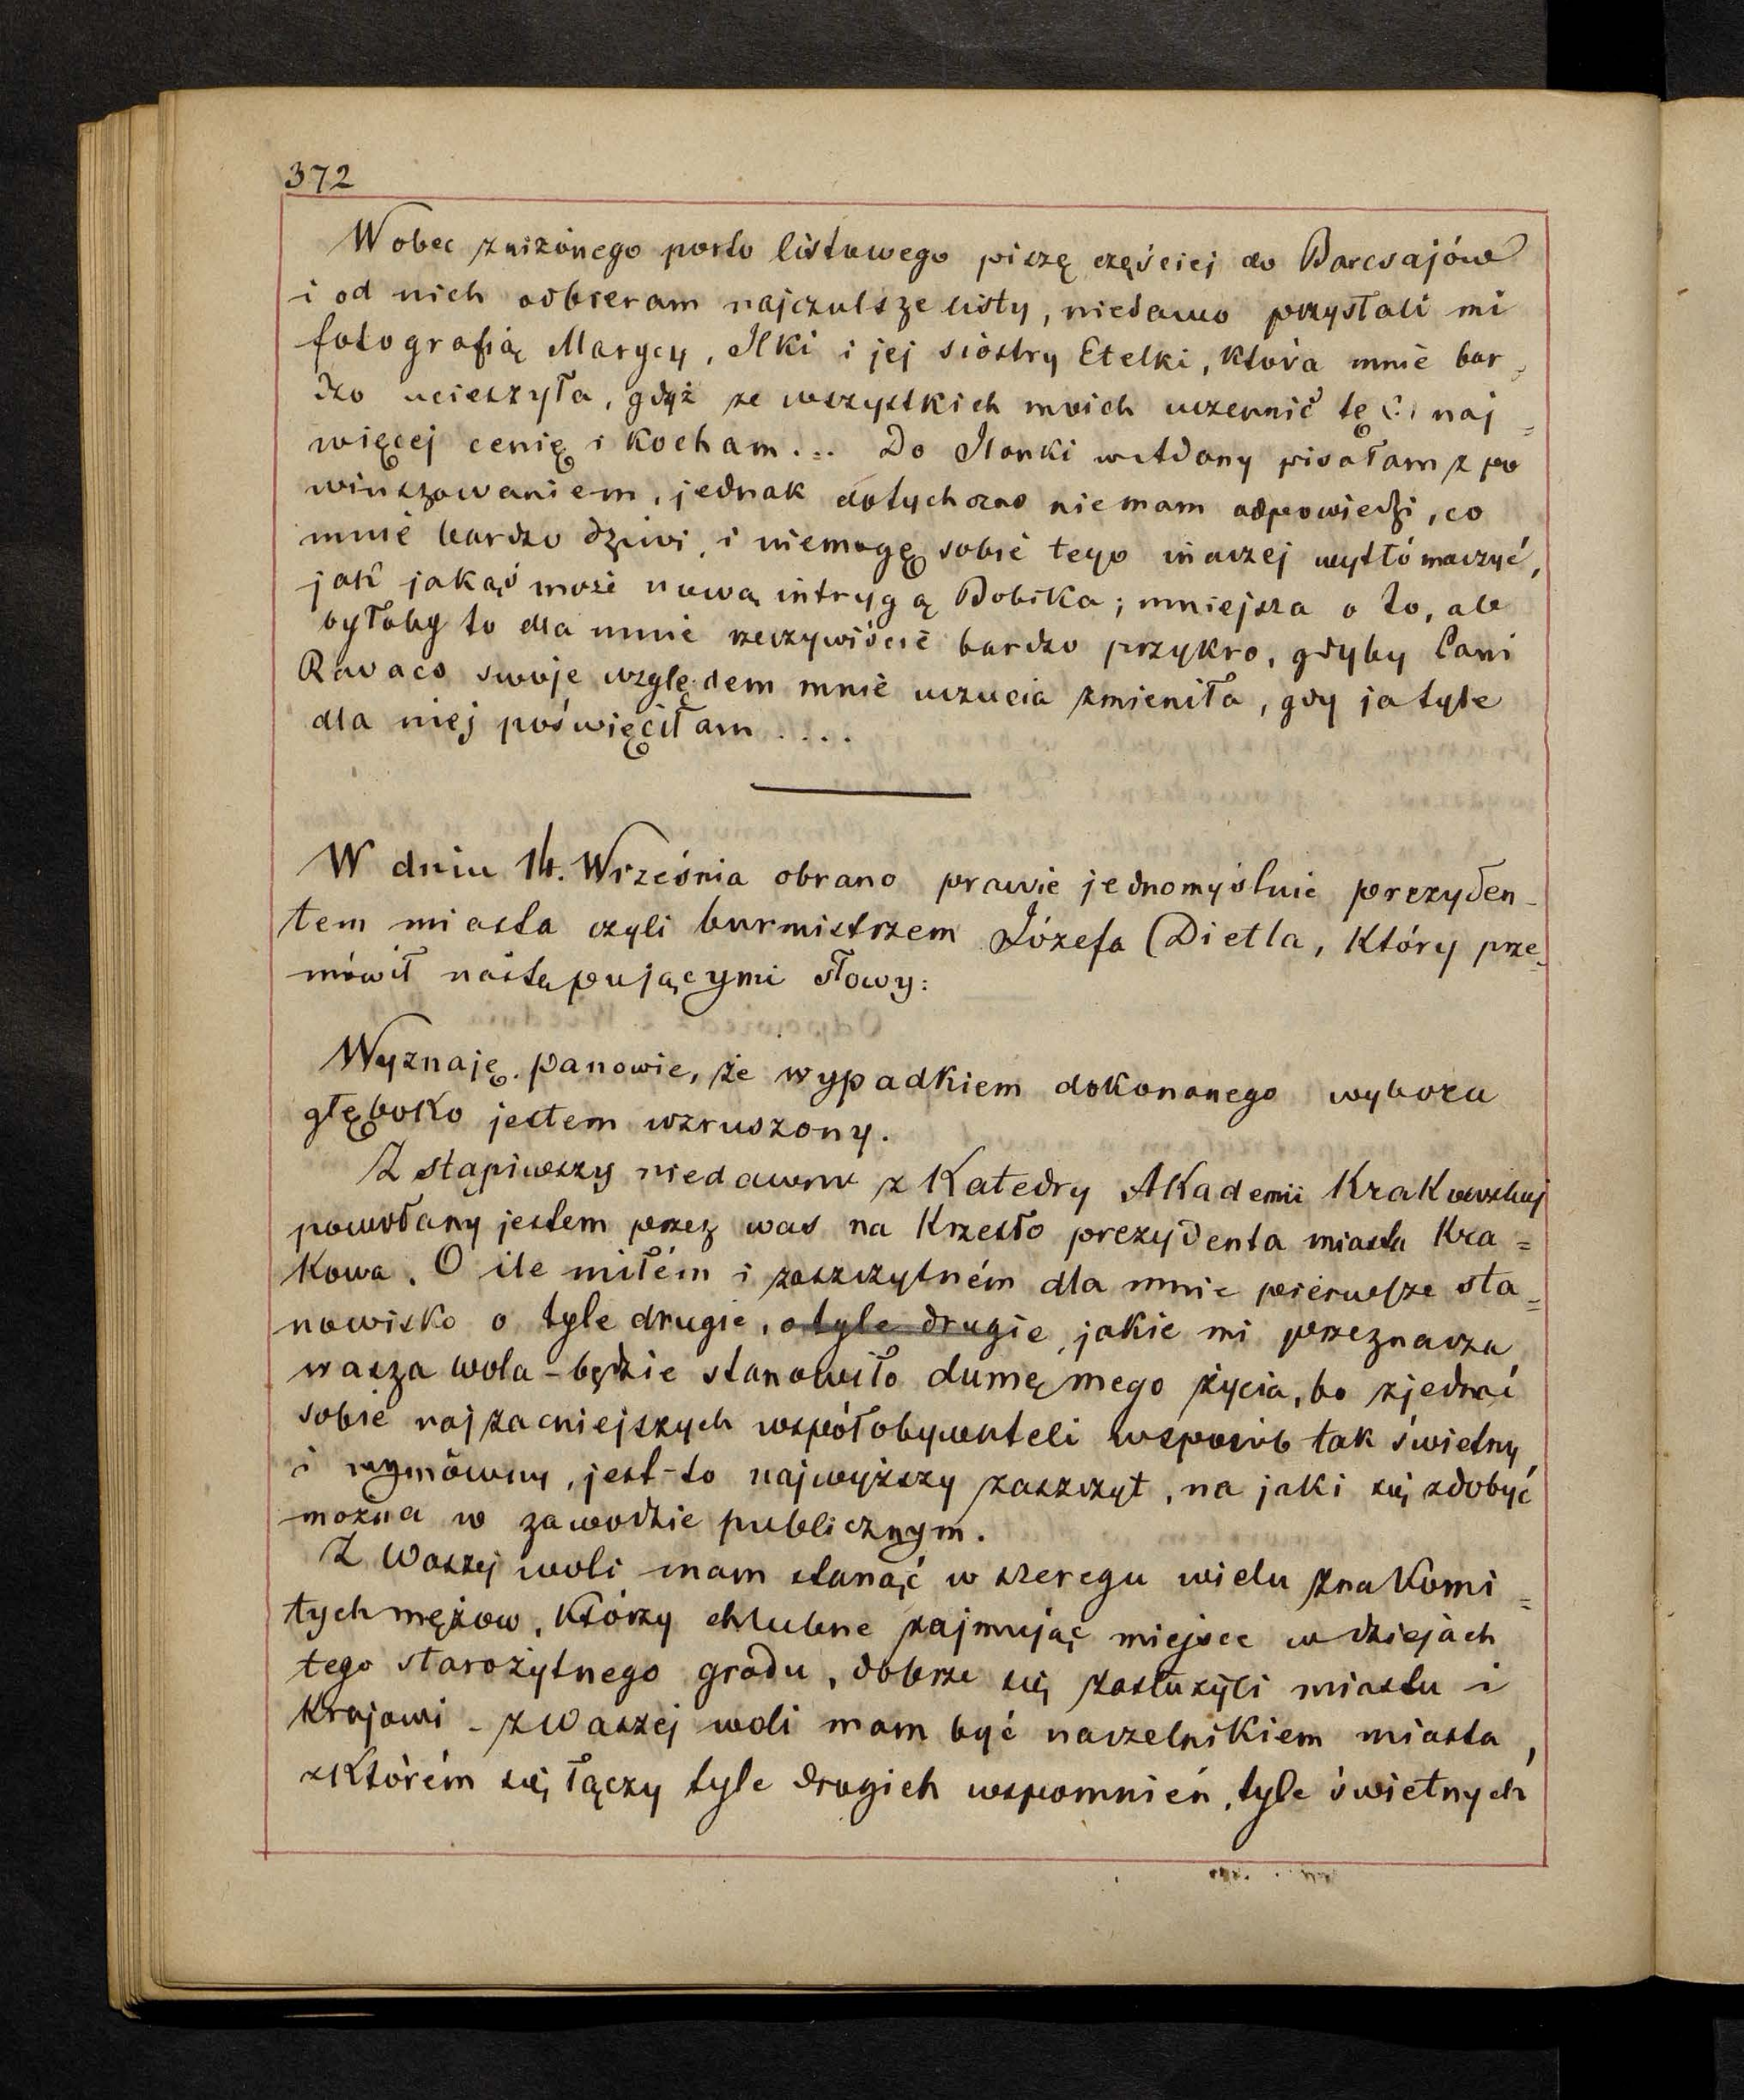 372
Wobec zniżonego porto listowego piszę częściej do Barcsajów
i od nich odbieram najczulsze listy, niedawno przysłali mi
fotografią Marycy, Ilki i jej siostry Etelki, która mnie bar-
dzo ucieszyła, gdyż ze wszystkich moich uczennic tę naj=
więcej cenię i kocham... Do Ilonki wtdony pisałam z po
winszowaniem, jednak dotychczas niemam odpowiedzi, co
mnie bardzo dziwi, i niemogę sobie tego inaczej wytłómaczyć,
jak jakąś może nową intrygą Bobika; mniejsza o to, ale
byłoby to dla mnie rzeczywiście bardzo przykro, gdyby Pani
Ravaco swoje względem mnie uczucia zmieniła, gdy ja tyle
dla niej poświęciłam ....
W dniu 14. Września obrano prawie jednomyślnie prezyden-
tem miasta czyli burmistrzem Józefa Dietla, który prze-
mówił następującymi słowy:
Wyznaję panowie, że wypadkiem dokonanego wyboru
głęboko jestem wzruszony.
Zstąpiwszy niedawno z Katedry Akademii Krakowskiej
powołany jestem przez was na Krzesło prezydenta miasta Kra=
kowa. O ile miłém i zaszczytném dla mnie pierwsze sta=
nowisko o tyle drugie, o tyle drugie, jakie mi przeznacza
wasza wola - będzie stanowiło dumę mego życia, bo zjednać
sobie najzacniejszych współobywateli wsposób tak świetny
i wymówny, jest-to najwyższy zaszczyt, na jaki się zdobyć
można w zawodzie publicznym.
Z Waszej woli mam stanąć w szeregu wielu znakomi=
tych mężow, Którzy chlubne zajmując miejsce w dziejach
tego starożytnego grodu, dobrze się zasłużyli miastu i
Krajowi - z Waszej woli mam być naczelnikiem miasta,
z Którém się łączy tyle drogich wspomnień, tyle świetnych